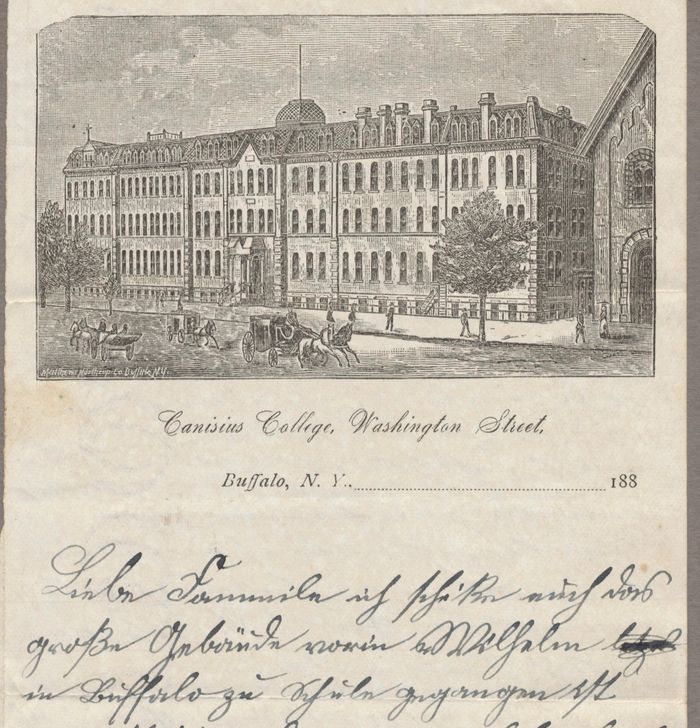 Matthews Northrup Co. Buffalo N.Y.
Canisius College, Washington Street,
Buffalo, N. Y. 188
Liebe Fammile ich schike euch das
große Gebäude vorin Wilhelm
in Buffalo zu Schule gegangen ist